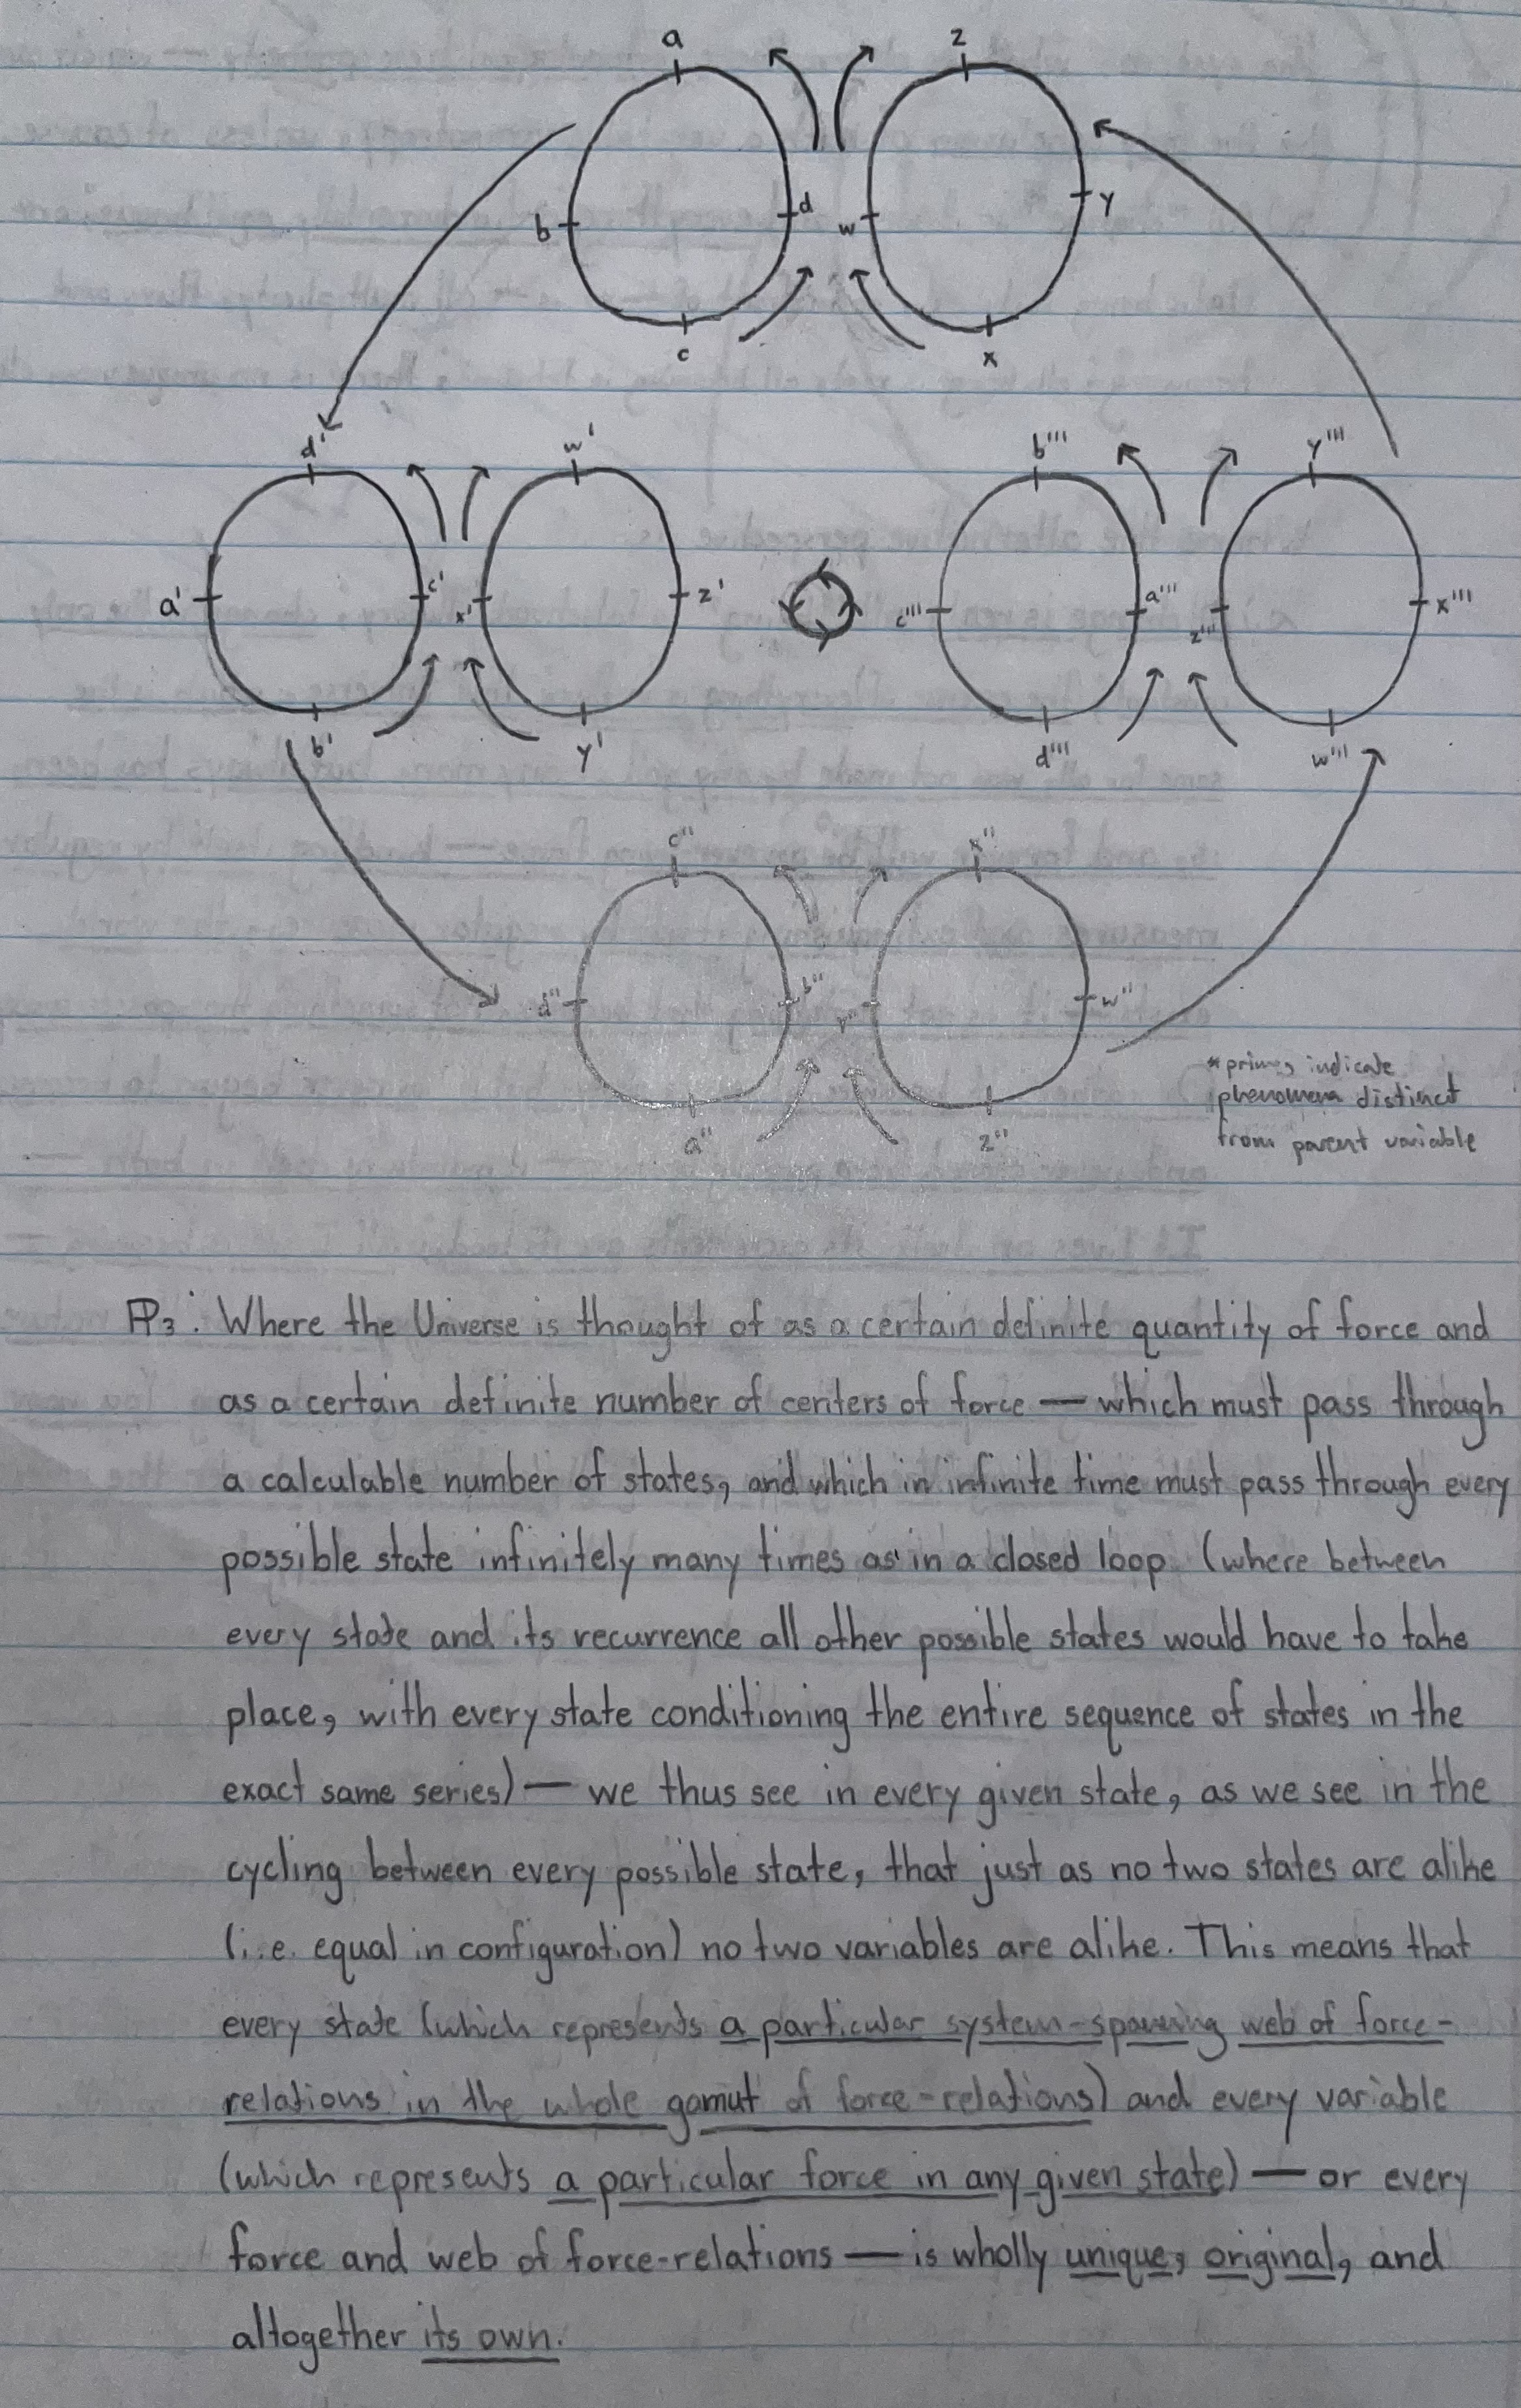 a z
b d w y
c x
d' w' b''' y'''
a' c' x' z' c''' a''' z''' x'''
b' y' d''' w'''
c" x"
d" b" y" w"
a" z"
*primes indicate
phenomena distinct
from parent variable
P3: Where the Universe is thought of as a certain definite quantity of force and
as a certain definite number of centers of force — which must pass through
a calculable number of states, and which in infinite time must pass through every
possible state infinitely many times as in a closed loop (where between
every state and its recurrence all other possible states would have to take
place, with every state conditioning the entire sequence of states in the
exact same series) — we thus see in every given state, as we see in the
cycling between every possible state, that just as no two states are alike
(i.e. equal in configuration) no two variables are alike. This means that
every state (which represents a particular system-spanning web of force-
relations in the whole gamut of force-relations) and every variable
(which represents a particular force in any given state) — or every
force and web of force-relations — is wholly unique, original, and
altogether its own.